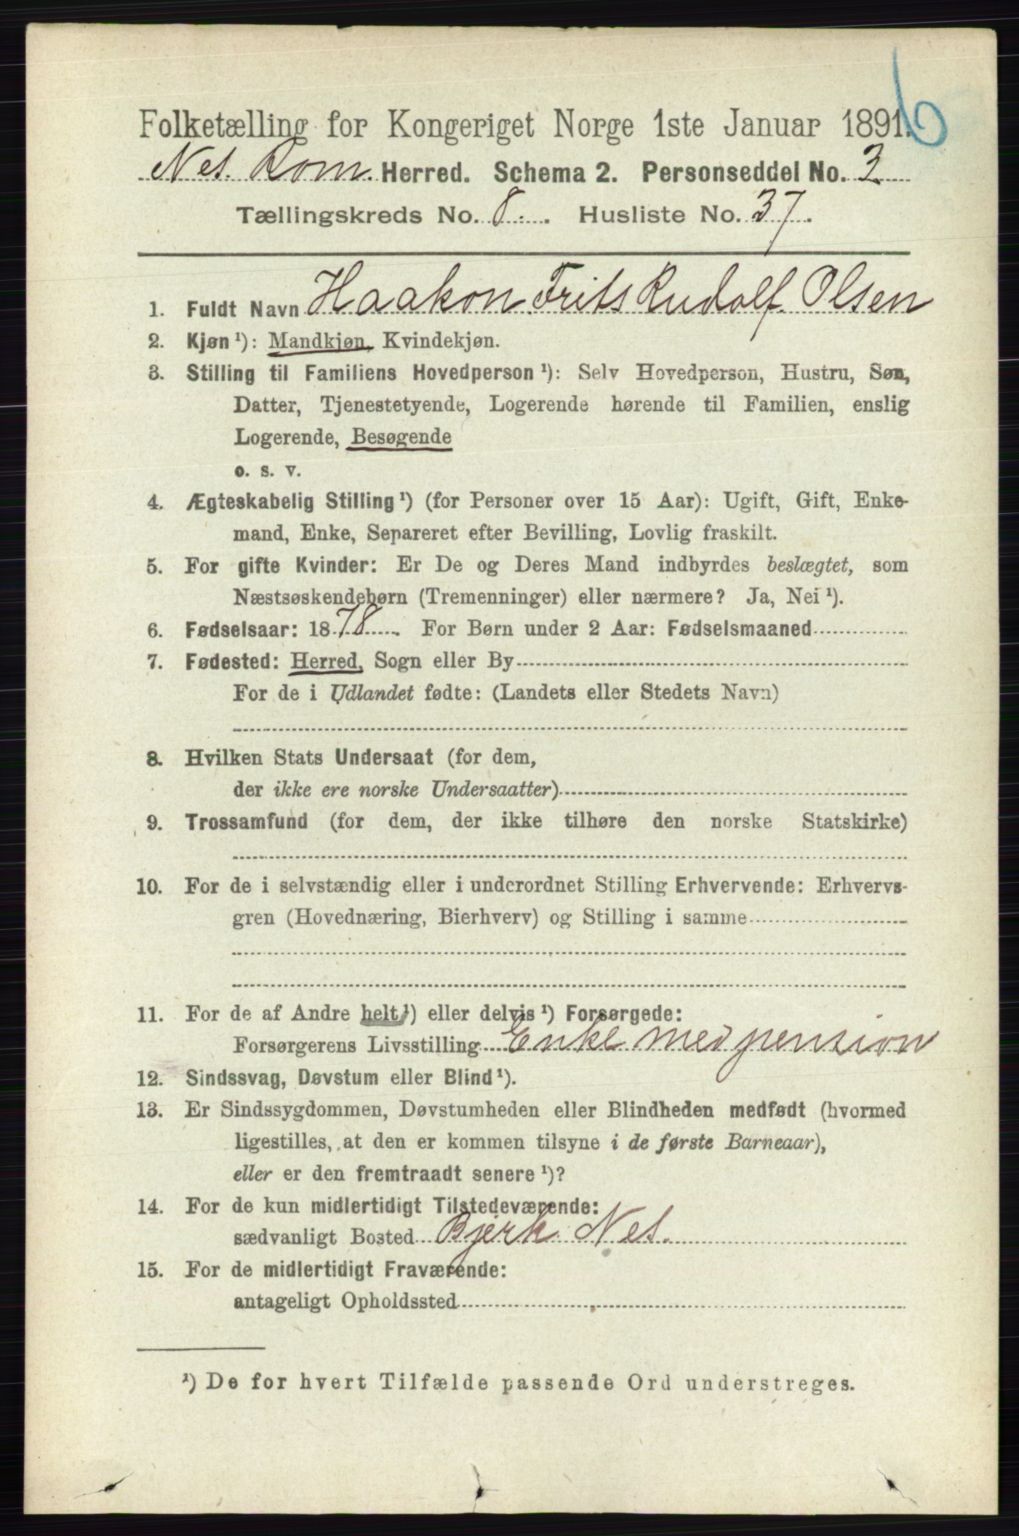 6
Folketælling for Kongeriget Norge 1ste Januar 1891.
Nes. Rom. Herred. Schema 2. Personseddel No. 3
Tællingskreds No. 8. Husliste No. 37.
1. Fuldt Navn Haakon Frits Rudolf Olsen
2. Kjøn ¹): Mandkjøn, Kvindekjøn.
3. Stilling til Familiens Hovedperson ¹): Selv Hovedperson, Hustru, Søn,
Datter, Tjenestetyende, Logerende hørende til Familien, enslig
Logerende, Besøgende
o. s. v.
4. Ægteskabelig Stilling ¹) (for Personer over 15 Aar): Ugift, Gift, Enke-
mand, Enke, Separeret efter Bevilling, Lovlig fraskilt.
5. For gifte Kvinder: Er De og Deres Mand indbyrdes beslægtet, som
Næstsøskendebørn (Tremenninger) eller nærmere? Ja, Nei ¹).
6. Fødselsaar: 1878. For Børn under 2 Aar: Fødselsmaaned
7. Fødested: Herred, Sogn eller By
For de i Udlandet fødte: (Landets eller Stedets Navn)
8. Hvilken Stats Undersaat (for dem,
der ikke ere norske Undersaatter)
9. Trossamfund (for dem, der ikke tilhøre den norske Statskirke)
10. For de i selvstændig eller i underordnet Stilling Erhvervende: Erhvervs-
gren (Hovednæring, Bierhverv) og Stilling i samme
11. For de af Andre helt ¹) eller delvis ¹) Forsørgede:
Forsørgerens Livsstilling Enke med pension
12. Sindssvag, Døvstum eller Blind ¹).
13. Er Sindssygdommen, Døvstumheden eller Blindheden medfødt (hvormed
ligestilles, at den er kommen tilsyne i de første Barneaar),
eller er den fremtraadt senere ¹)?
14. For de kun midlertidigt Tilstedeværende:
sædvanligt Bosted Bjerk Nes.
15. For de midlertidigt Fraværende:
antageligt Opholdssted
¹) De for hvert Tilfælde passende Ord understreges.